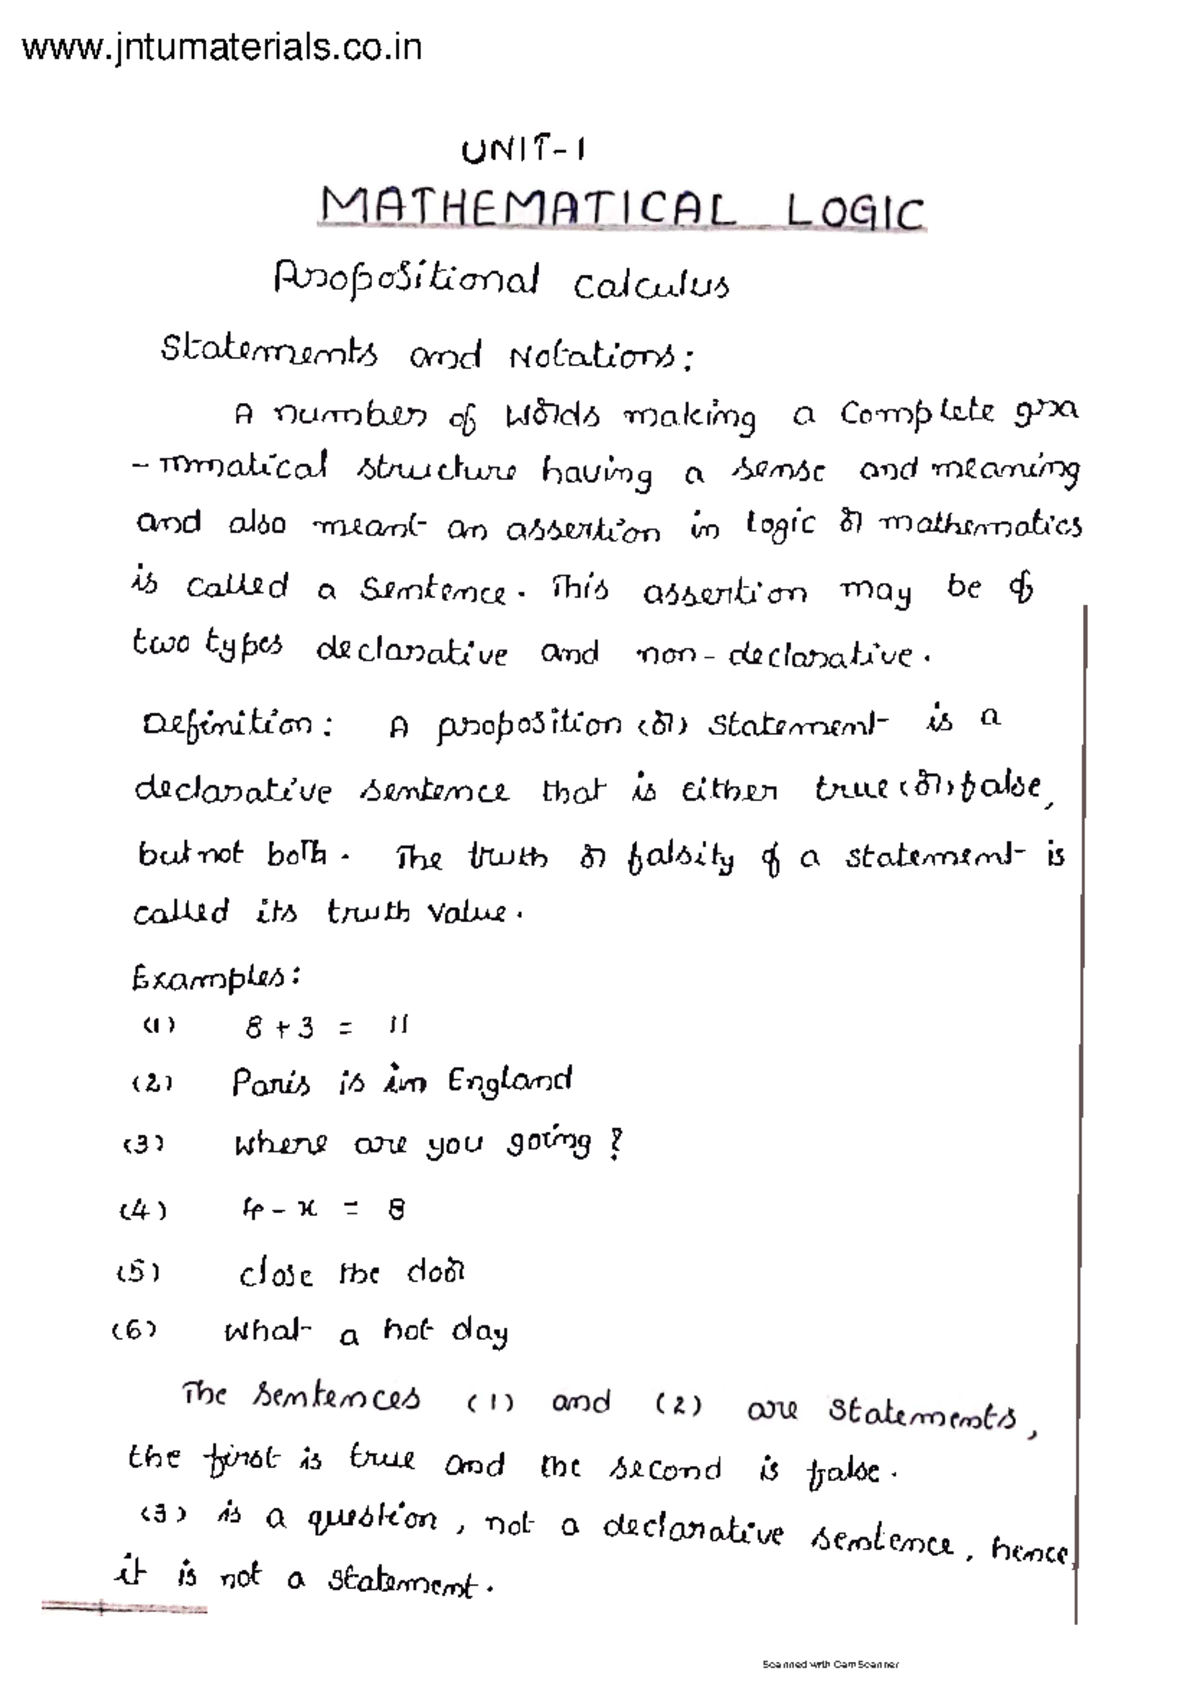 www.jntumaterials.co.in
UNIT-1
MATHEMATICAL LOGIC
Propositional calculus
Statements and Notations:
A number of words making a complete gra
-mmatical structure having a sense and meaning
and also meant an assertion in logic or mathematics
is called a sentence. This assertion may be of
two types declarative and non-declarative.
Definition: A proposition (or) statement is a
declarative sentence that is either true (or) false,
but not both. The truth or falsity of a statement is
called its truth value.
Examples:
(1) 8+3 = 11
(2) Paris is in England
(3) where are you going?
(4) 4-x = 8
(5) close the door
(6) what a hot day
The sentences (1) and (2) are statements,
the first is true and the second is false.
(3) is a question, not a declarative sentence, hence
it is not a statement.
Scanned with CamScanner